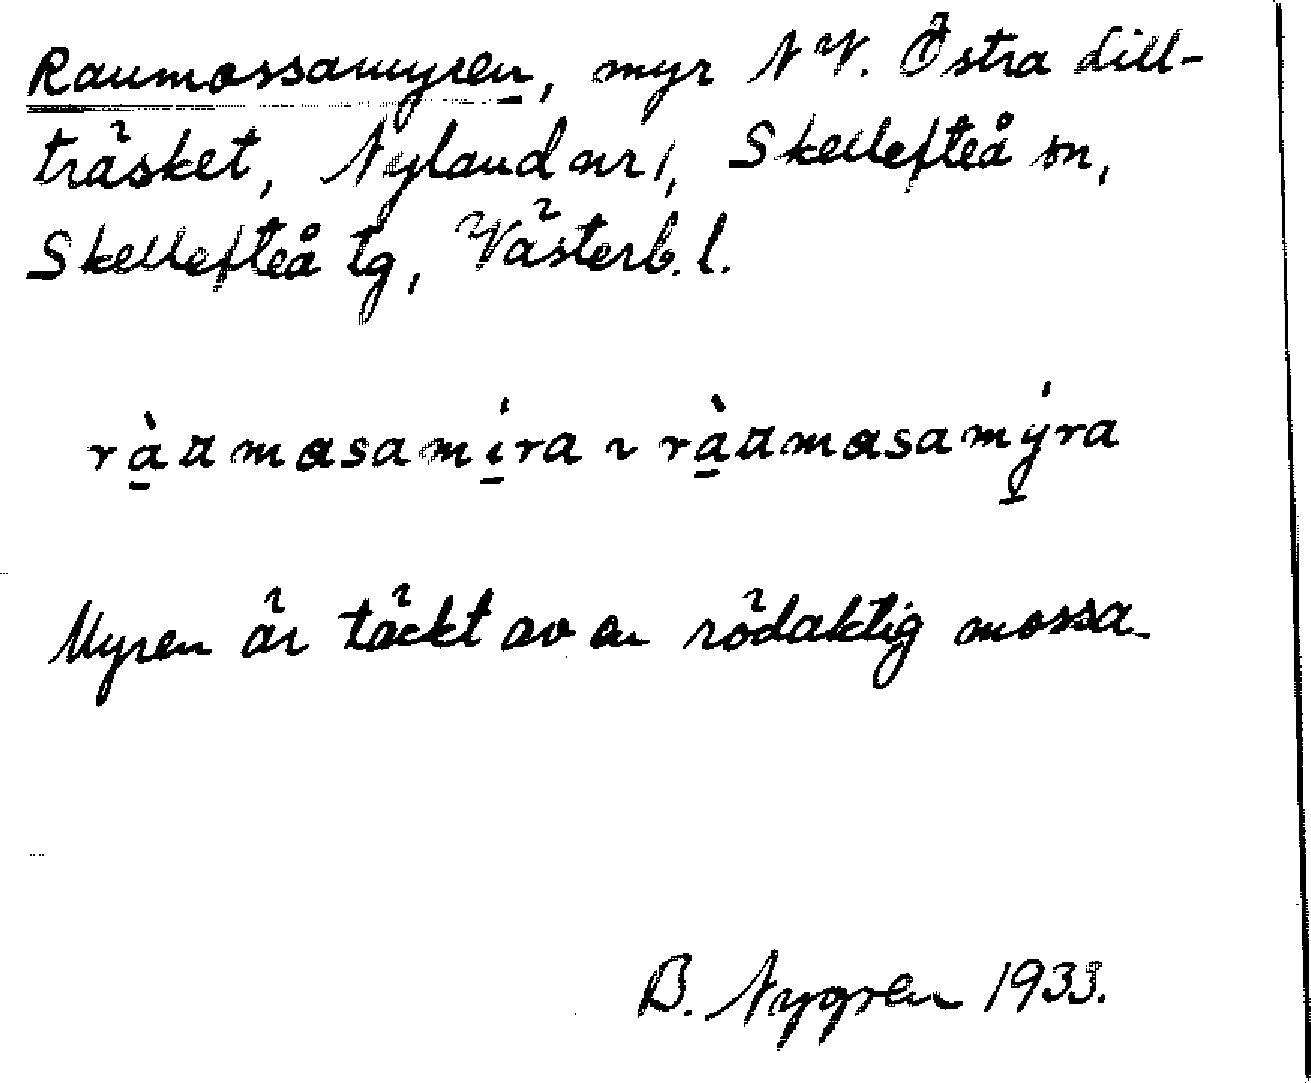 Raumossamyren, myr NV. Östra Lill-
träsket, Nyland nr 1, Skellefteå sn,
Skellefteå tg, Västerb. l.
rà̱ɯmɑsamí̱ra ~ rà̱ɯmɑsamý̱ra
Myren är täckt av en rödaktig mossa.
B. Nygren 1933.